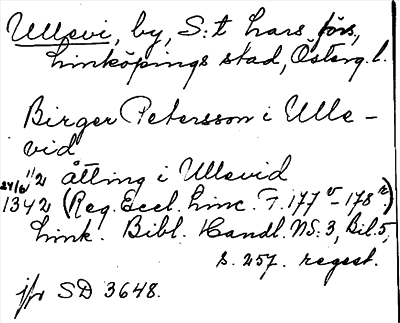 Ullevi, by, S:t Lars förs,
Linköpings stad, Österg. l.
Birger Petersson i Ulle-
vid
1/2 åtting i Ullevid
24/6 1342 (Reg. Eccl. Linc. T. 177v-178r)
Link. Bibl. Handl. NS. 3, Bil. 5,
s. 257. regest.
jfr SD 3648.